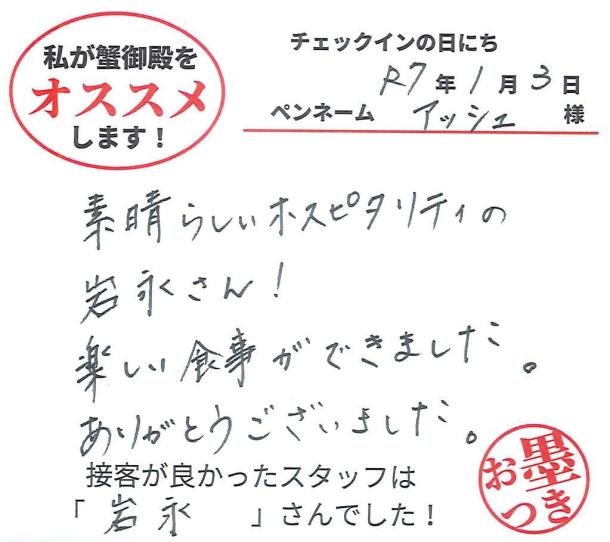 私が蟹御殿を
オススメ
します！
チェックインの日にち
R7年1月3日
ペンネーム アッシュ 様
素晴らしいホスピタリティの
岩永さん！
楽しい食事ができました。
ありがとうございました。
接客が良かったスタッフは
「岩永 」さんでした！
お墨つき